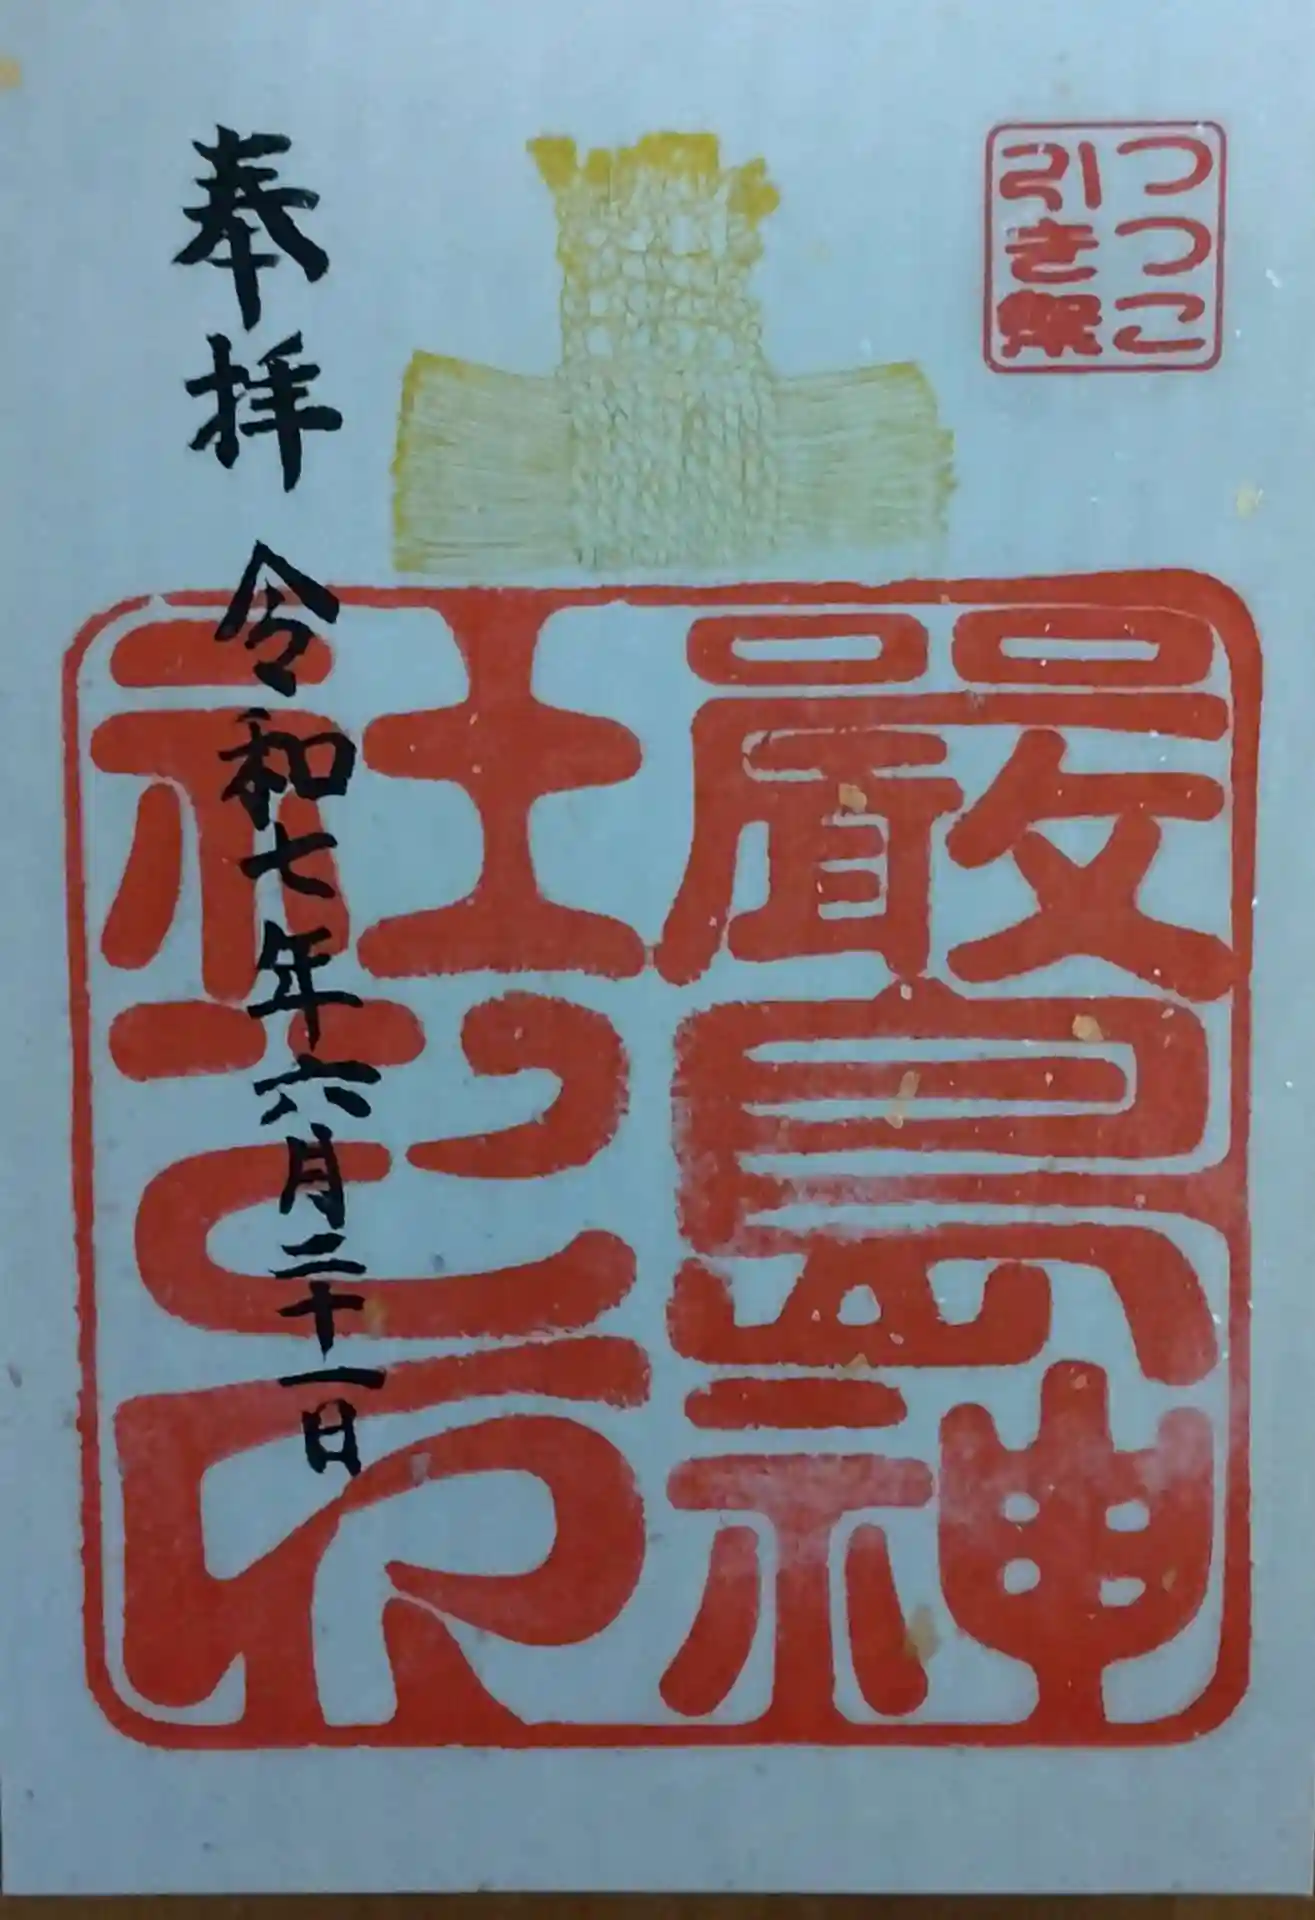 つつこ
引き祭
厳島神
社之印
奉拝 令和七年六月二十一日